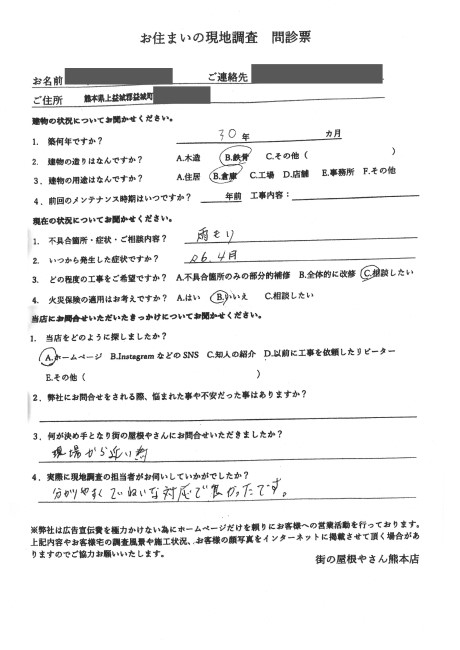 お住まいの現地調査 問診票
お名前 ご連絡先
ご住所 熊本県上益城郡益城町
建物の状況についてお聞かせください。
1. 築何年ですか? 30 年 カ月
2. 建物の造りはなんですか? A.木造 B.鉄骨 C.その他( )
3. 建物の用途はなんですか? A.住居 B.倉庫 C.工場 D.店舗 E.事務所 F.その他
4. 前回のメンテナンス時期はいつですか? 年前 工事内容:
現在の状況についてお聞かせください。
1. 不具合箇所・症状・ご相談内容? 雨もり
2. いつから発生した症状ですか? R6.4月
3. どの程度の工事をご希望ですか? A.不具合箇所のみの部分的補修 B.全体的に改修 C.相談したい
4. 火災保険の適用はお考えですか? A.はい B.いいえ C.相談したい
当店にお問合せいただいたきっかけについてお聞かせください。
1. 当店をどのように探しましたか?
A.ホームページ B.InstagramなどのSNS C.知人の紹介 D.以前に工事を依頼したリピーター
E.その他( )
2. 弊社にお問合せをされる際、悩まれた事や不安だった事はありますか?
3. 何が決め手となり街の屋根やさんにお問合せいただきましたか?
現場から近い為
4. 実際に現地調査の担当者がお伺いしていかがでしたか?
分かりやすくていねいな対応で良かったです。
※弊社は広告宣伝費を極力かけない為にホームページだけを頼りにお客様への営業活動を行っております。
上記内容やお客様宅の調査風景や施工状況、お客様の顔写真をインターネットに掲載させて頂く場合があ
りますのでご協力お願いいたします。
街の屋根やさん熊本店